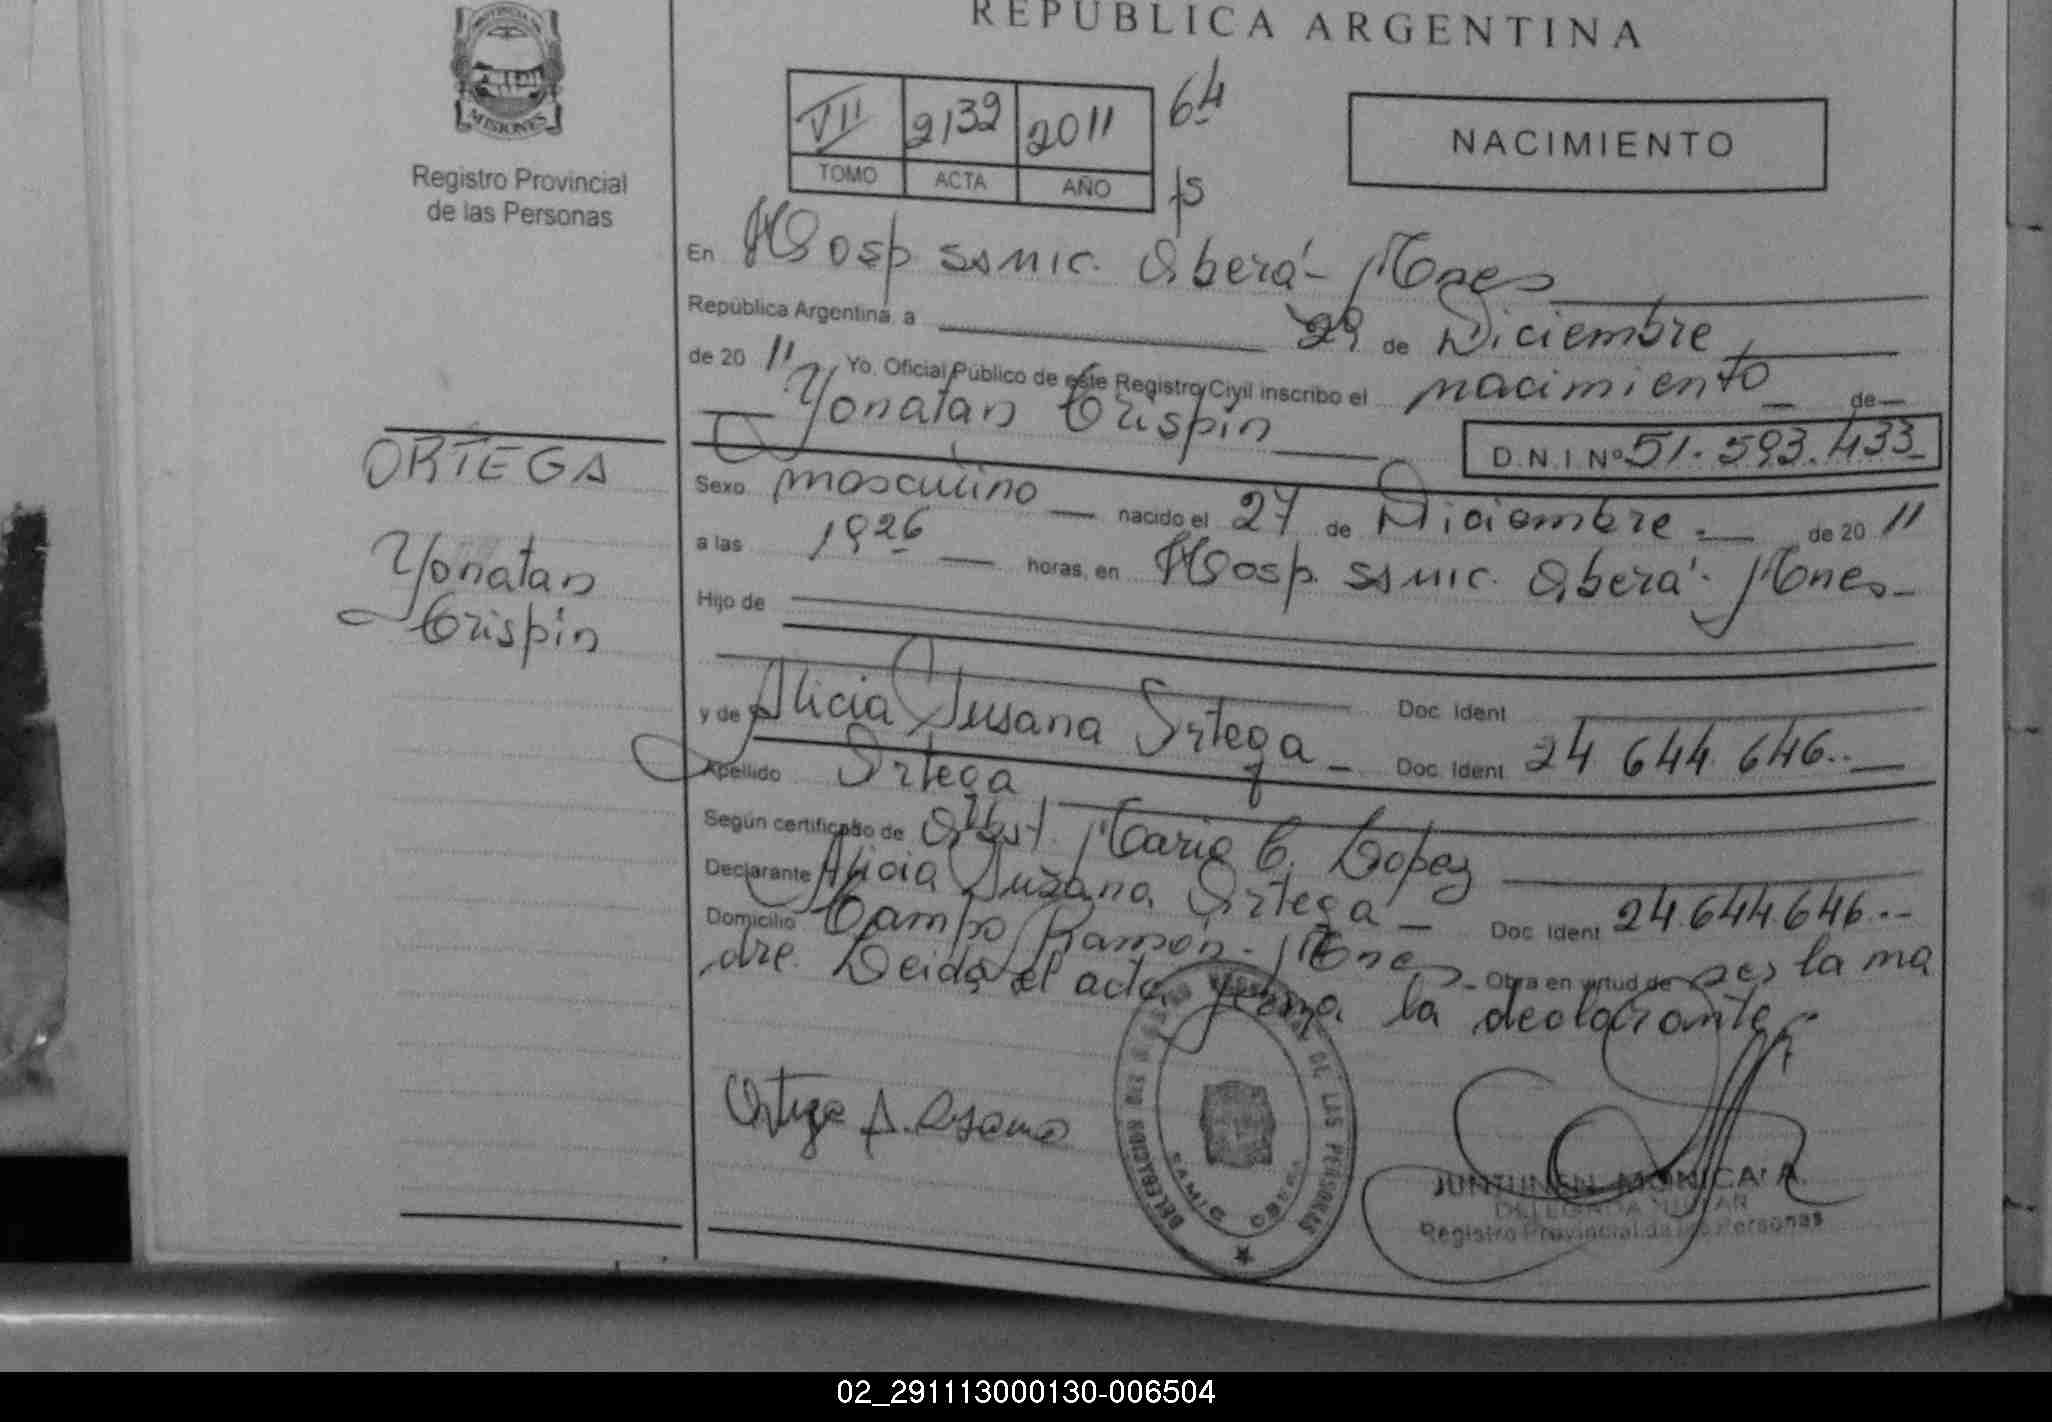 REPÚBLICA ARGENTINA
PROVINCIA DE
MISIONES
Registro Provincial
de las Personas
VII 2132 2011 64
TOMO ACTA AÑO fs
NACIMIENTO
En Hosp SSMIC. Oberá - Mnes
República Argentina, a 29 de Diciembre
de 20 11 Yo, Oficial Público de este Registro Civil inscribo el nacimiento de
Yonatan Crispin
D.N.I Nº 51.593.433
ORTEGA
Yonatan
Crispin
Sexo masculino nacido el 27 de Diciembre de 20 11
a las 19 26 horas, en Hosp. SSMIC. Oberá - Mnes
Hijo de
Doc. Ident
y de Alicia Susana Ortega Doc. Ident 24 644 646
Apellido Ortega
Según certificado de Obst. Maria C. Lopez
Declarante Alicia Susana Ortega Doc. Ident 24.644.646
Domicilio Campo Ramón - Mnes Obra en virtud de ser la ma
dre. Leida el acta firma la declarante
Ortega A. Susana
DELEGACION DEL REGISTRO PROVINCIAL DE LAS PERSONAS
SAMIC OBERA
JUNTUNEN MONICA A.
DELEGADA TITULAR
Registro Provincial de las Personas
02_291113000130-006504